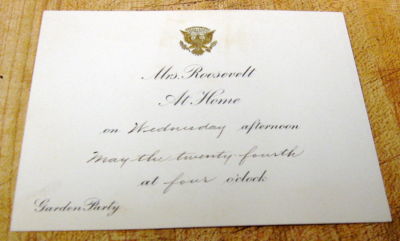 Mrs. Roosevelt
At Home
on Wednesday afternoon
May the twenty fourth
at four o'clock
Garden Party